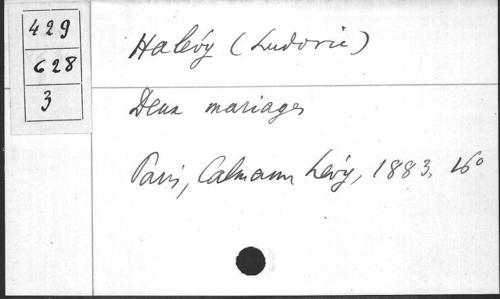 429
628
3
Halévy (Ludovic)
Deux mariages
Paris, Calmann Lévy, 1883, 16°